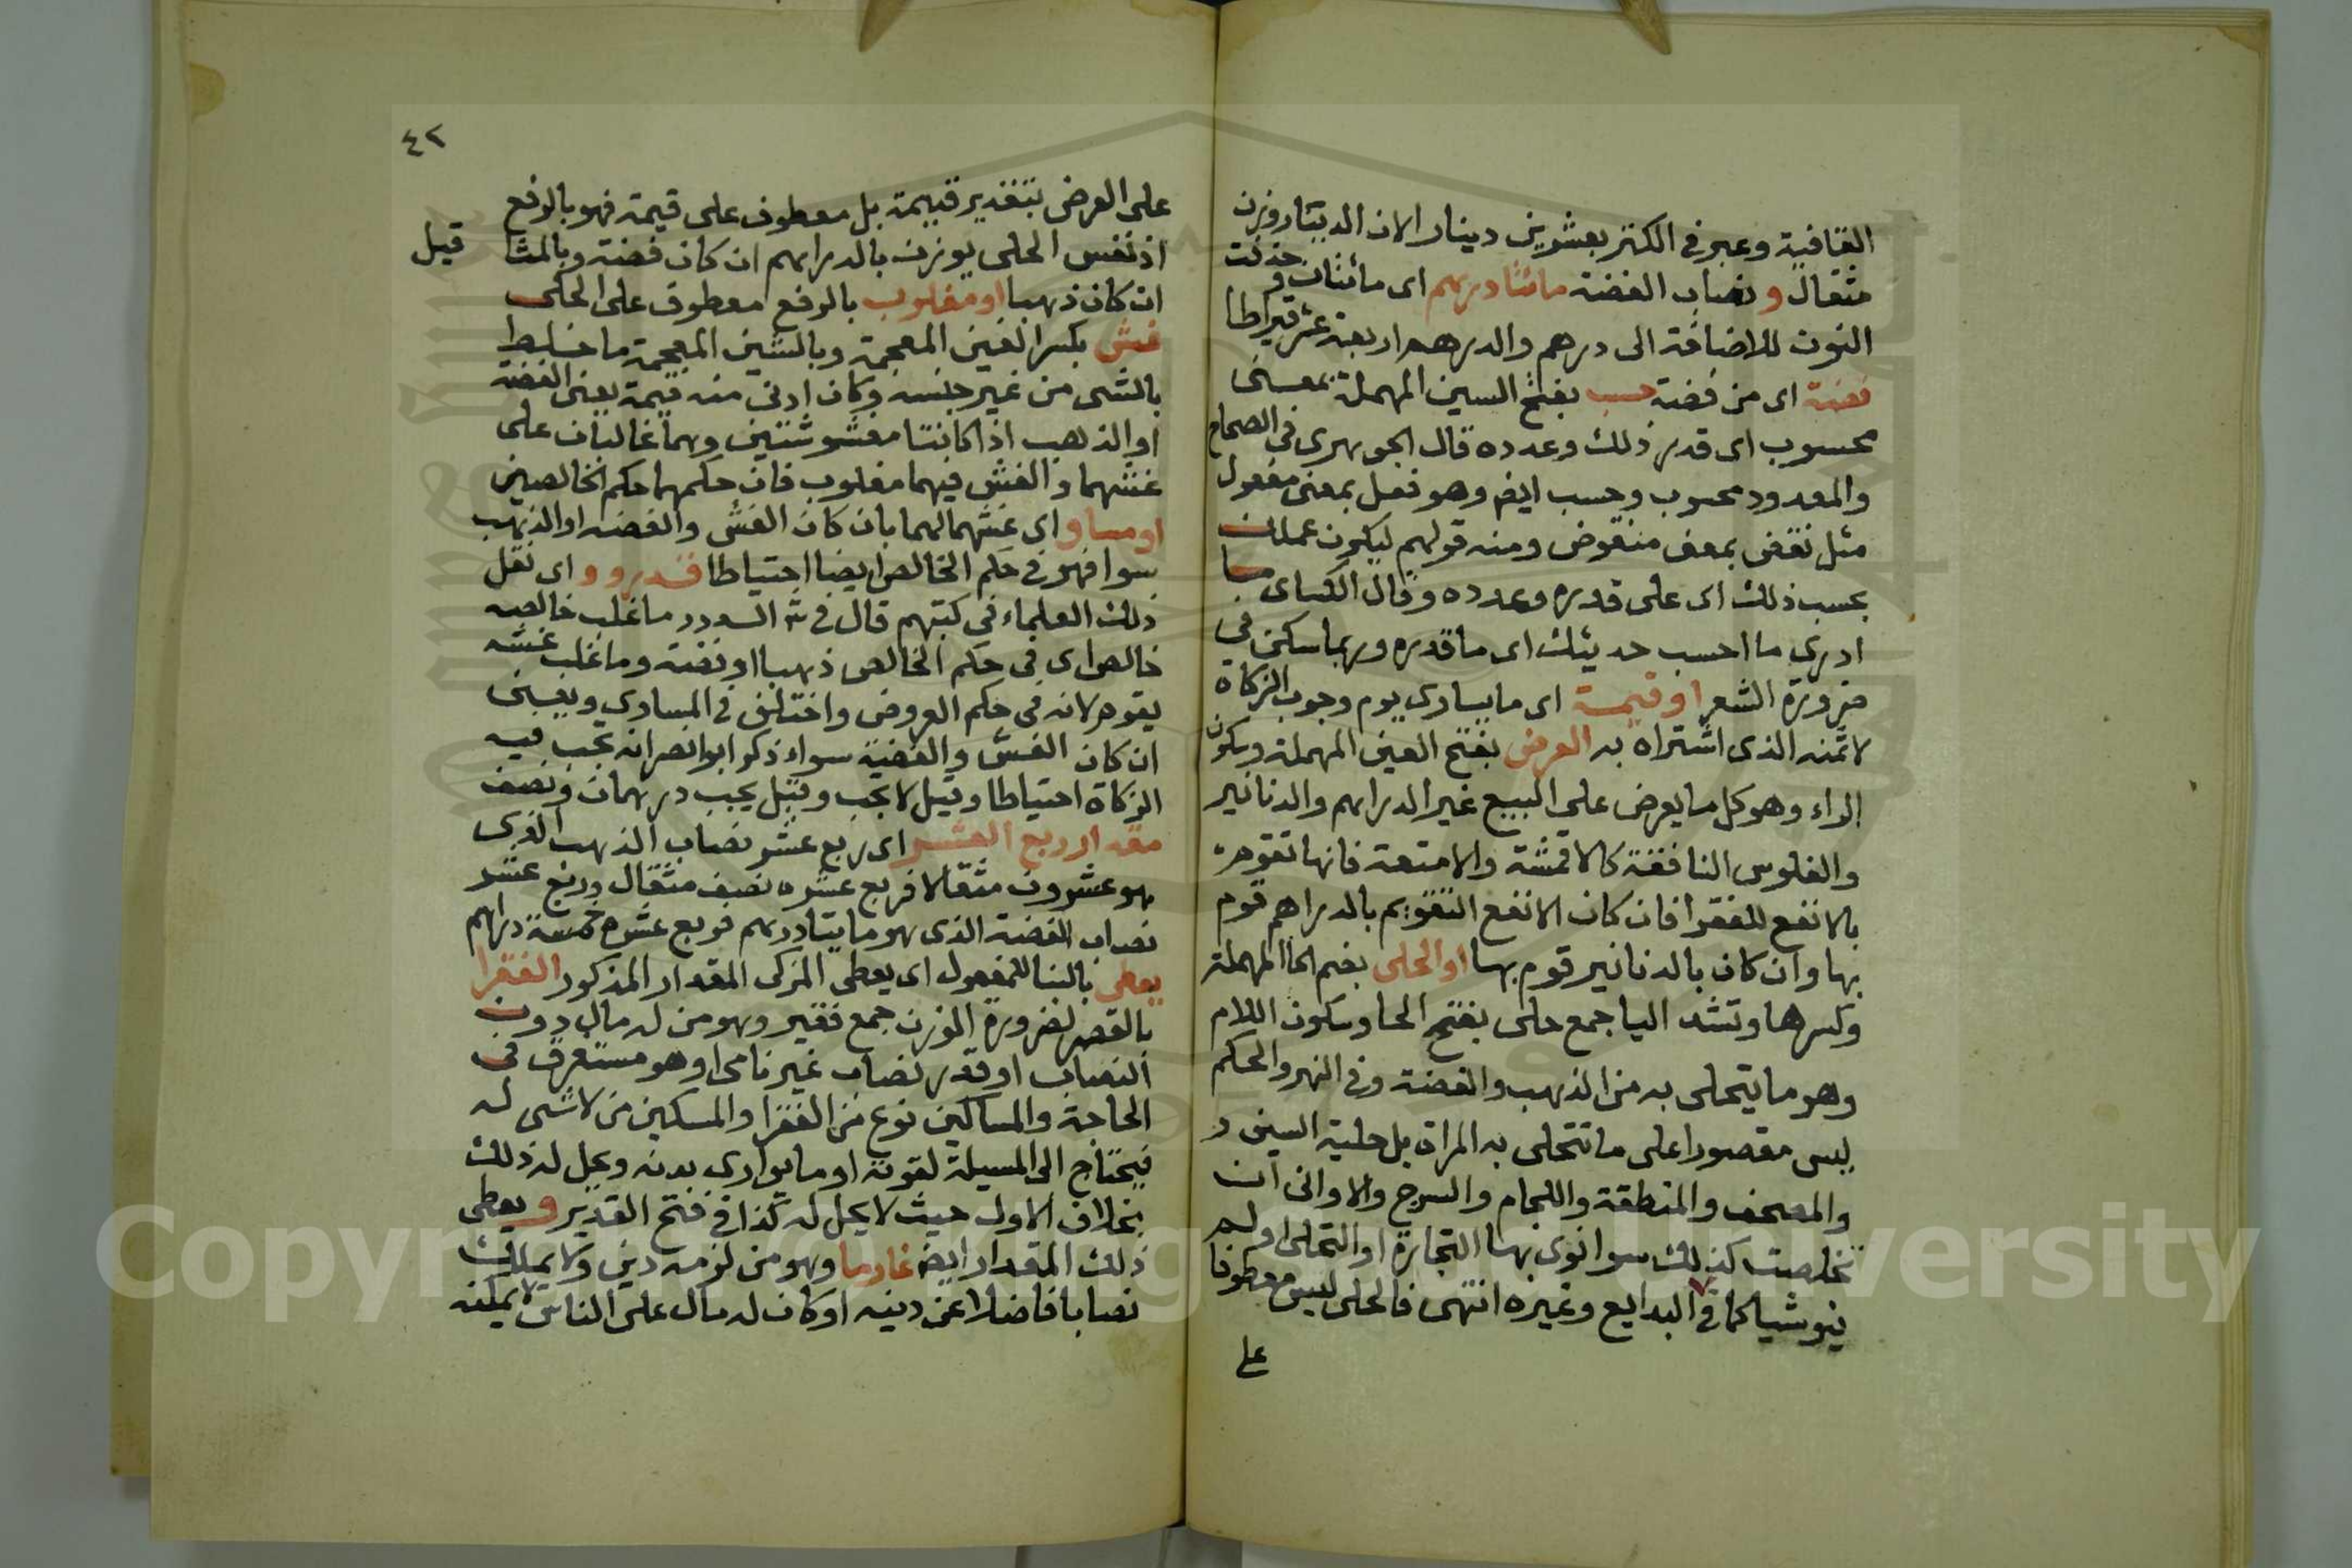 القافية وعبر في الكنز بعشرين دينار الان الدينار وزن
مثقال و نصاب الفضة مائتا درهم اى مائتان وحذفت
النون للاضافة الى درهم والدرهم اربعة عشر قيراطا
فضة اى من فضة حسب بفتح السين المهملة بمعنى
محسوب اى قدر ذلك وعدده قال الجوهرى فى الصحاح
والمعدود محسوب وحسب ايضا وهو فعل بمعنى مفعول
مثل نقض بمعنى منقوض ومنه قولهم ليكون عملك
بحسب ذلك اى على قدره وعدده وقال الكساى ما
ادرى ما احسب حديثك اى ما قدره وربما سكن في
ضرورة الشعر او قيمة اى ما يساوى يوم وجوب الزكاة
لا ثمنه الذى اشتراه به العرض بفتح العين المهملة وسكون
الراء وهو كل ما يعرض على البيع غير الدراهم والدنانير
والفلوس النافقة كالاقمشة والامتعة فانها تقوم
بالانفع للفقرا فان كان الانفع التقويم بالدراهم قوم
بها وان كان بالدنانير قوم بها او الحلى بضم الحا المهملة
وكسرها وتشد اليا جمع حلى بفتح الحا وسكون اللام
وهو ما يتحلى به من الذهب والفضة وفى النهر والحكم
ليس مقصورا على ما تتحلى به المراة بل حلية السيف و
والمصحف والمنطقة واللجام والسرج والاوانى ان
تخلصت كذلك سوا نوى بها التجارة او التحلى او لم
ينو شيا كما فى البدايع وغيره انتهى فالحلى ليس معطوفا
على
٤٢
على العرض بتقدير قيمة بل معطوف على قيمة فهو بالرفع
اذ نفس الحلى يوزن بالدراهم ان كان فضة وبالمثا قيل
ان كان ذهبا او مغلوب بالرفع معطوف على الحلى
غش بكسر الغين المعجمة وبالشين المعجمة ما خليط
بالشى من غير جنسه وكان ادنى منه قيمة يعنى الفضة
او الذهب اذا كانتا مغشوشتين وهما غالبان على
غشهما والغش فيهما مغلوب فان حكمهما حكم الخالصين
او مساو اى غشهما لهما بان كان الغش والفضة او الذهب
سوا فهو في حكم الخالص ايضا احتياطا قد رووا اى نقل
ذلك العلماء فى كتبهم قال فى ش الدرر ما غلب خالصه
خالص اى فى حكم الخالص ذهبا او فضة وما غلب غشه
يقوم لانه فى حكم العروض واختلف في المساوى ويعنى
ان كان الغش والفضة سواء ذكر ابو النصر انه يجب فيه
الزكاة احتياطا وقيل لا يجب وقيل يجب درهمان ونصف
مقدار ربع العشر اى ربع عشر نصاب الذهب الذى
هو عشرون مثقالا فربع عشره نصف مثقال وربع عشر
نصاب الفضة الذى هو مايتا درهم فربع عشره خمسة دراهم
يعطى بالبنا للمفعول اى يعطى المزكى المقدار المذكور الفقرا
بالقصر لضرورة الوزن جمع فقير وهو من له مال دون
النصاب او قدر نصاب غير نامى او هو مستغرق فى
الحاجة والمساكين نوع من الفقرا والمسكين من لا شى له
فيحتاج الى المسيلة لقوته او ما يوارى بدنه ويحل له ذلك
بخلاف الاول حيث لا يحل له كذا فى فتح القدير ويعطى
ذلك المقدار ايضا غارما وهو من لزمه دين ولا يملك
نصابا فاضلا عن دينه او كان له مال على الناس لا يمكنه
Copyright © King Saud University